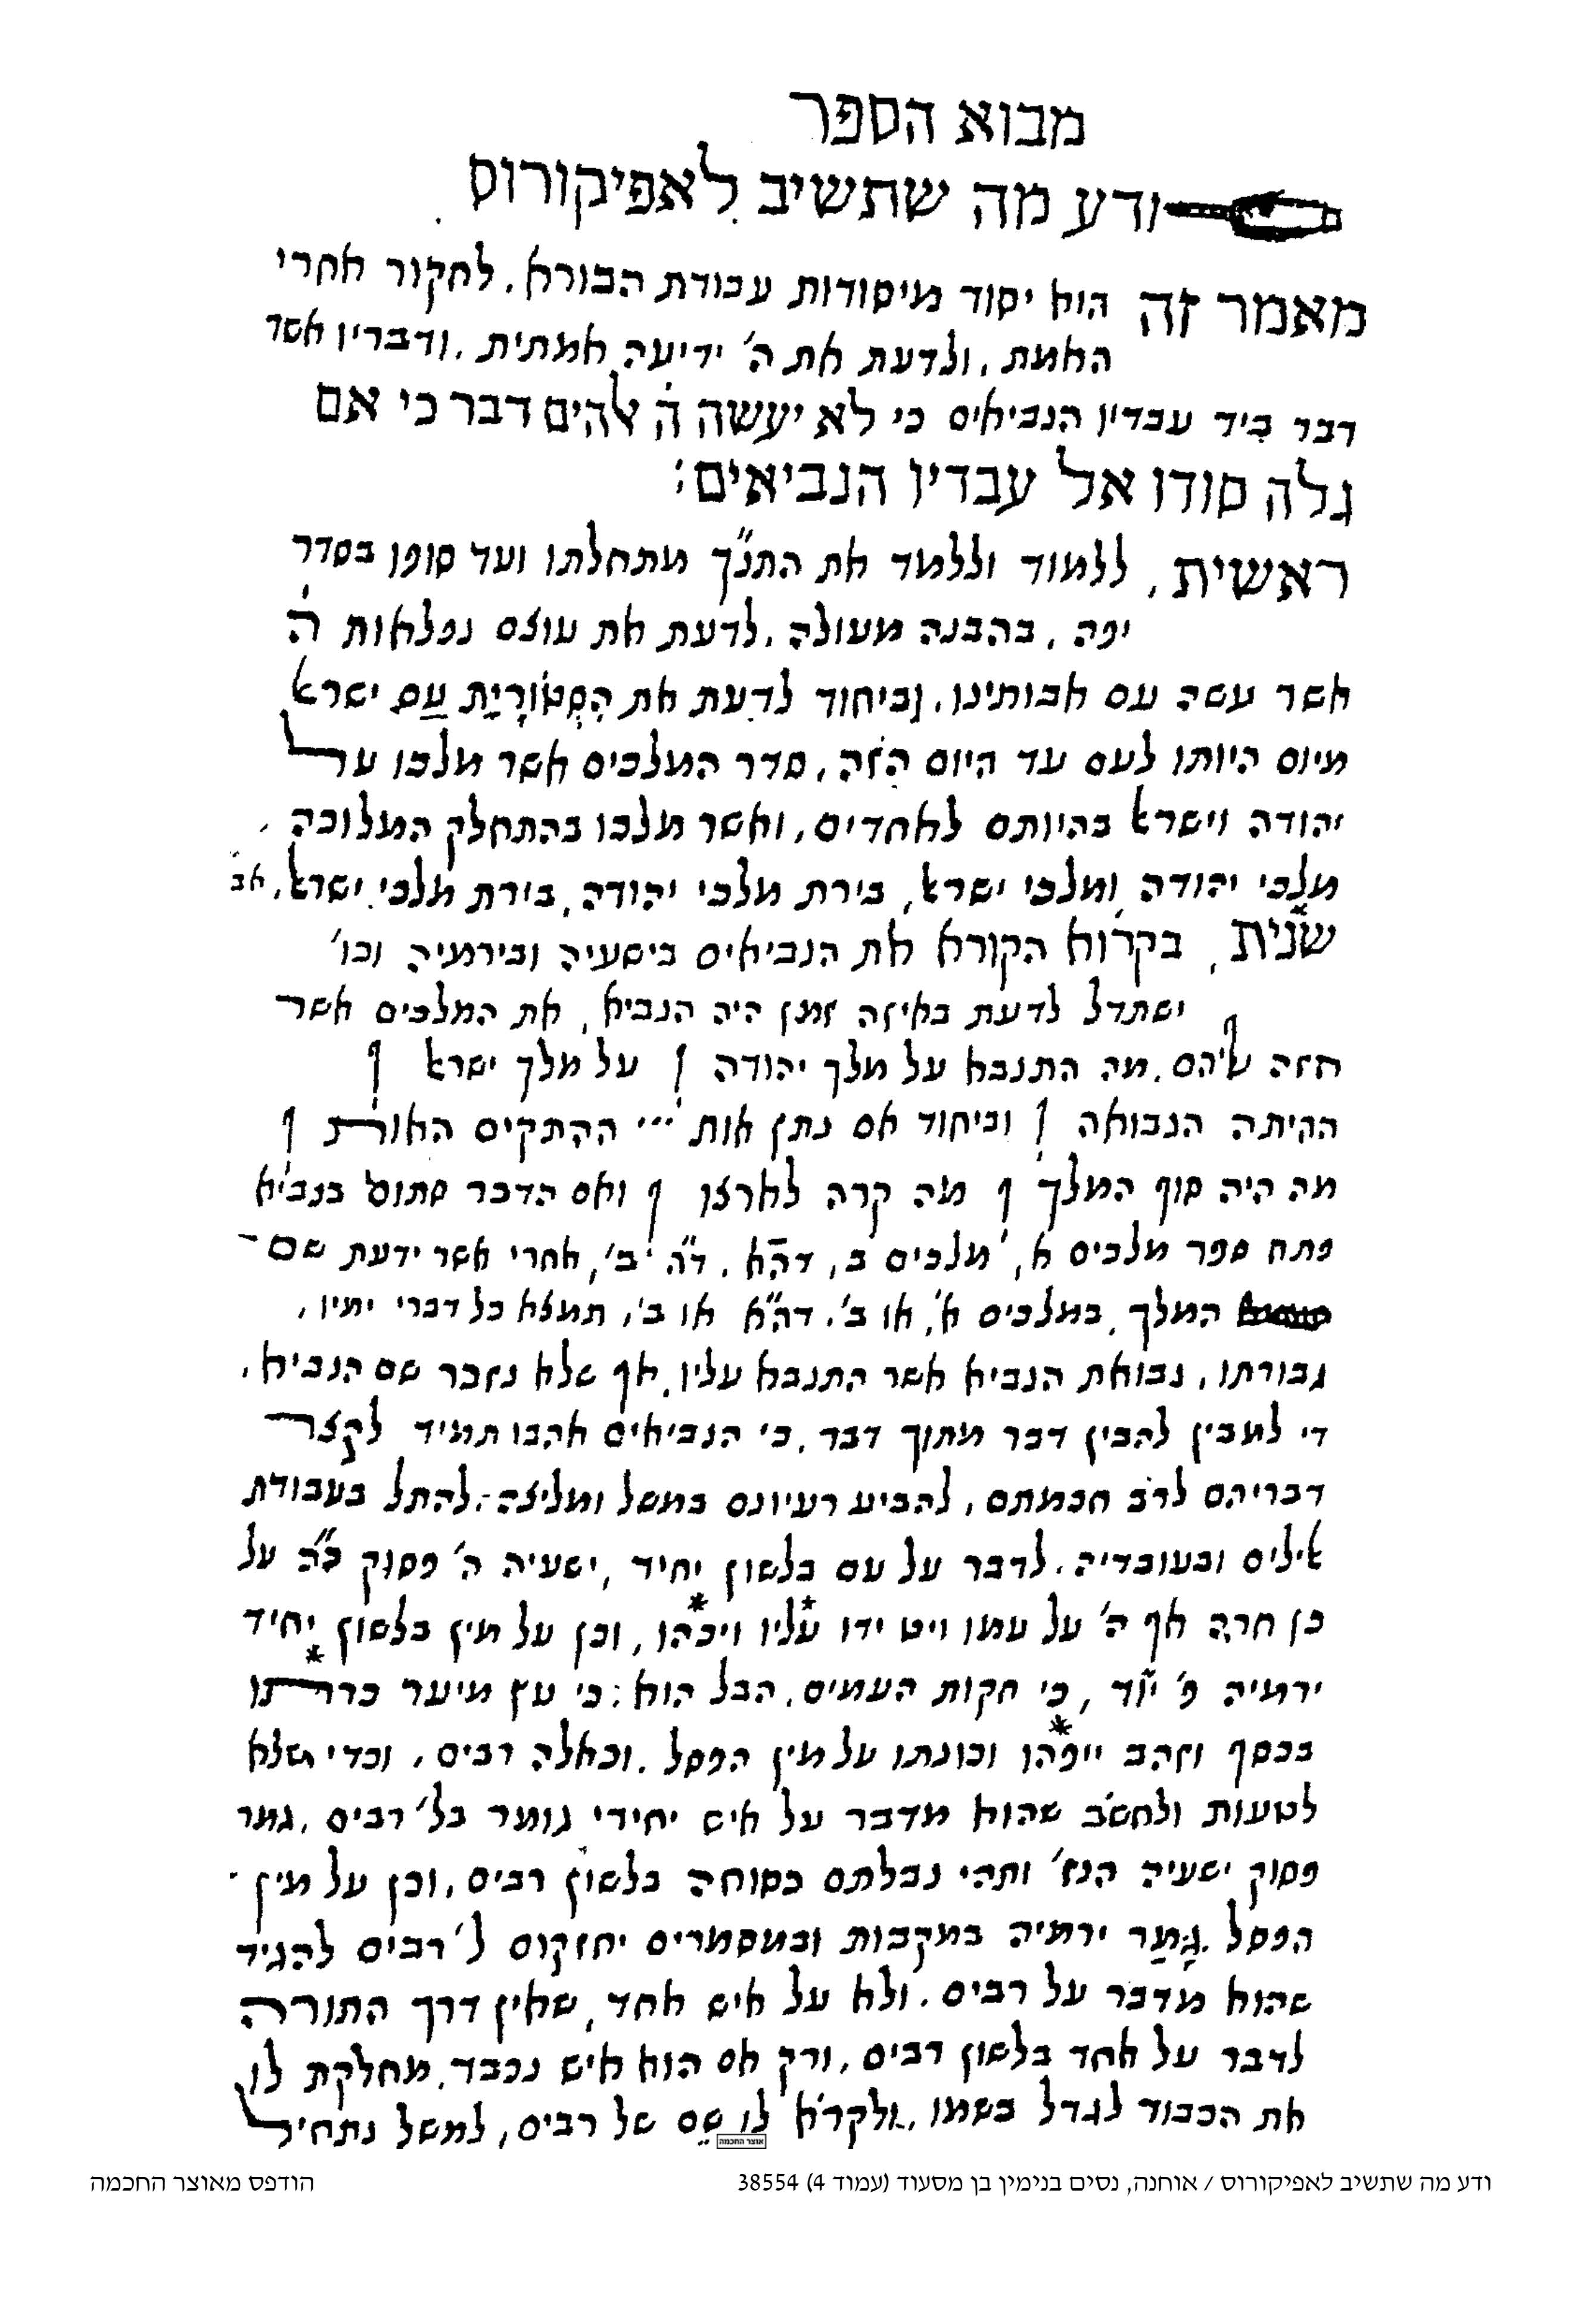 מבוא הספר
ודע מה שתשיב לאפיקורוס
מאמר זה הוא יסוד מיסודות עבודת הבורא. לחקור אחרי
האמת, ולדעת את ה' ידיעה אמתית. ודבריו אשר
דבר ביד עבדיו הנביאים כי לא יעשה ה' אלהים דבר כי אם
גלה סודו אל עבדיו הנביאים:
ראשית, ללמוד וללמד את התנ"ך מתחלתו ועד סופו בסדר
יפה, בהבנה מעולה, לדעת את עוצם נפלאות ה'
אשר עשה עם אבותינו, וביחוד לדעת את הִסְטוֹרִיַת עַם ישראל
מיום היותו לעם עד היום הזה, סדר המלכים אשר מלכו על
יהודה וישראל בהיותם לאחדים, ואשר מלכו בהתחלק המלוכה
מלכי יהודה ומלכי ישראל, בירת מלכי יהודה, בירת מלכי ישראל,
שנית, בקרוא הקורא את הנביאים בישעיה ובירמיה וכו'
ישתדל לדעת באיזה זמן היה הנביא, את המלכים אשר
חזה עליהם. מה התנבא על מלך יהודה ? על מלך ישראל ?
ההיתה הנבואה ? וביחוד אם נתן אות ... ההתקים האות ?
מה היה סוף המלך ? מה קרה לארצו ? ואם הדבר סתום בנביא
פתח ספר מלכים א, מלכים ב, דהא, ד"ה ב', אחרי אשר ידעת שם
המלך, במלכים א', או ב', דה"א או ב', תמצא כל דברי ימיו,
גבורתו, נבואת הנביא אשר התנבא עליו, אף שלא נזכר שם הנביא,
די למבין להבין דבר מתוך דבר, כי הנביאים אהבו תמיד לקצר
דבריהם לרב חכמתם, להביע רעיונם במשל ומליצה, להתל בעבודת
אלילים ובעובדיה. לדבר על עם בלשון יחיד, ישעיה ה' פסוק כ"ה על
כן חרה אף ה' על עמו ויט ידו עליו ויכהו, וכן על מין בלשון יחיד
ירמיה פ' יו"ד, כי חקות העמים, הבל הוא: כי עץ מיער כרתו
בכסף וזהב ייפהו וכונתו על מין הפסל. וכאלה רבים, וכדי שלא
לטעות ולחשב שהוא מדבר על איש יחידי גומר בל' רבים, גמר
פסוק ישעיה הנז' ותהי נבלתם כסוחה בלשון רבים, וכן על מין
הפסל גָמַר ירמיה במקבות ובמסמרים יחזקום ל' רבים להגיד
שהוא מדבר על רבים. ולא על איש אחד, שאין דרך התורה
לדבר על אחד בלשון רבים, ורק אם הוא איש נכבד, מחלקת לו
את הכבוד לגדל בשמו, ולקרא לו שם של רבים, למשל נתחיל
אוצר החכמה
ודע מה שתשיב לאפיקורוס / אוחנה, נסים בנימין בן מסעוד (עמוד 4) 38554
הודפס מאוצר החכמה